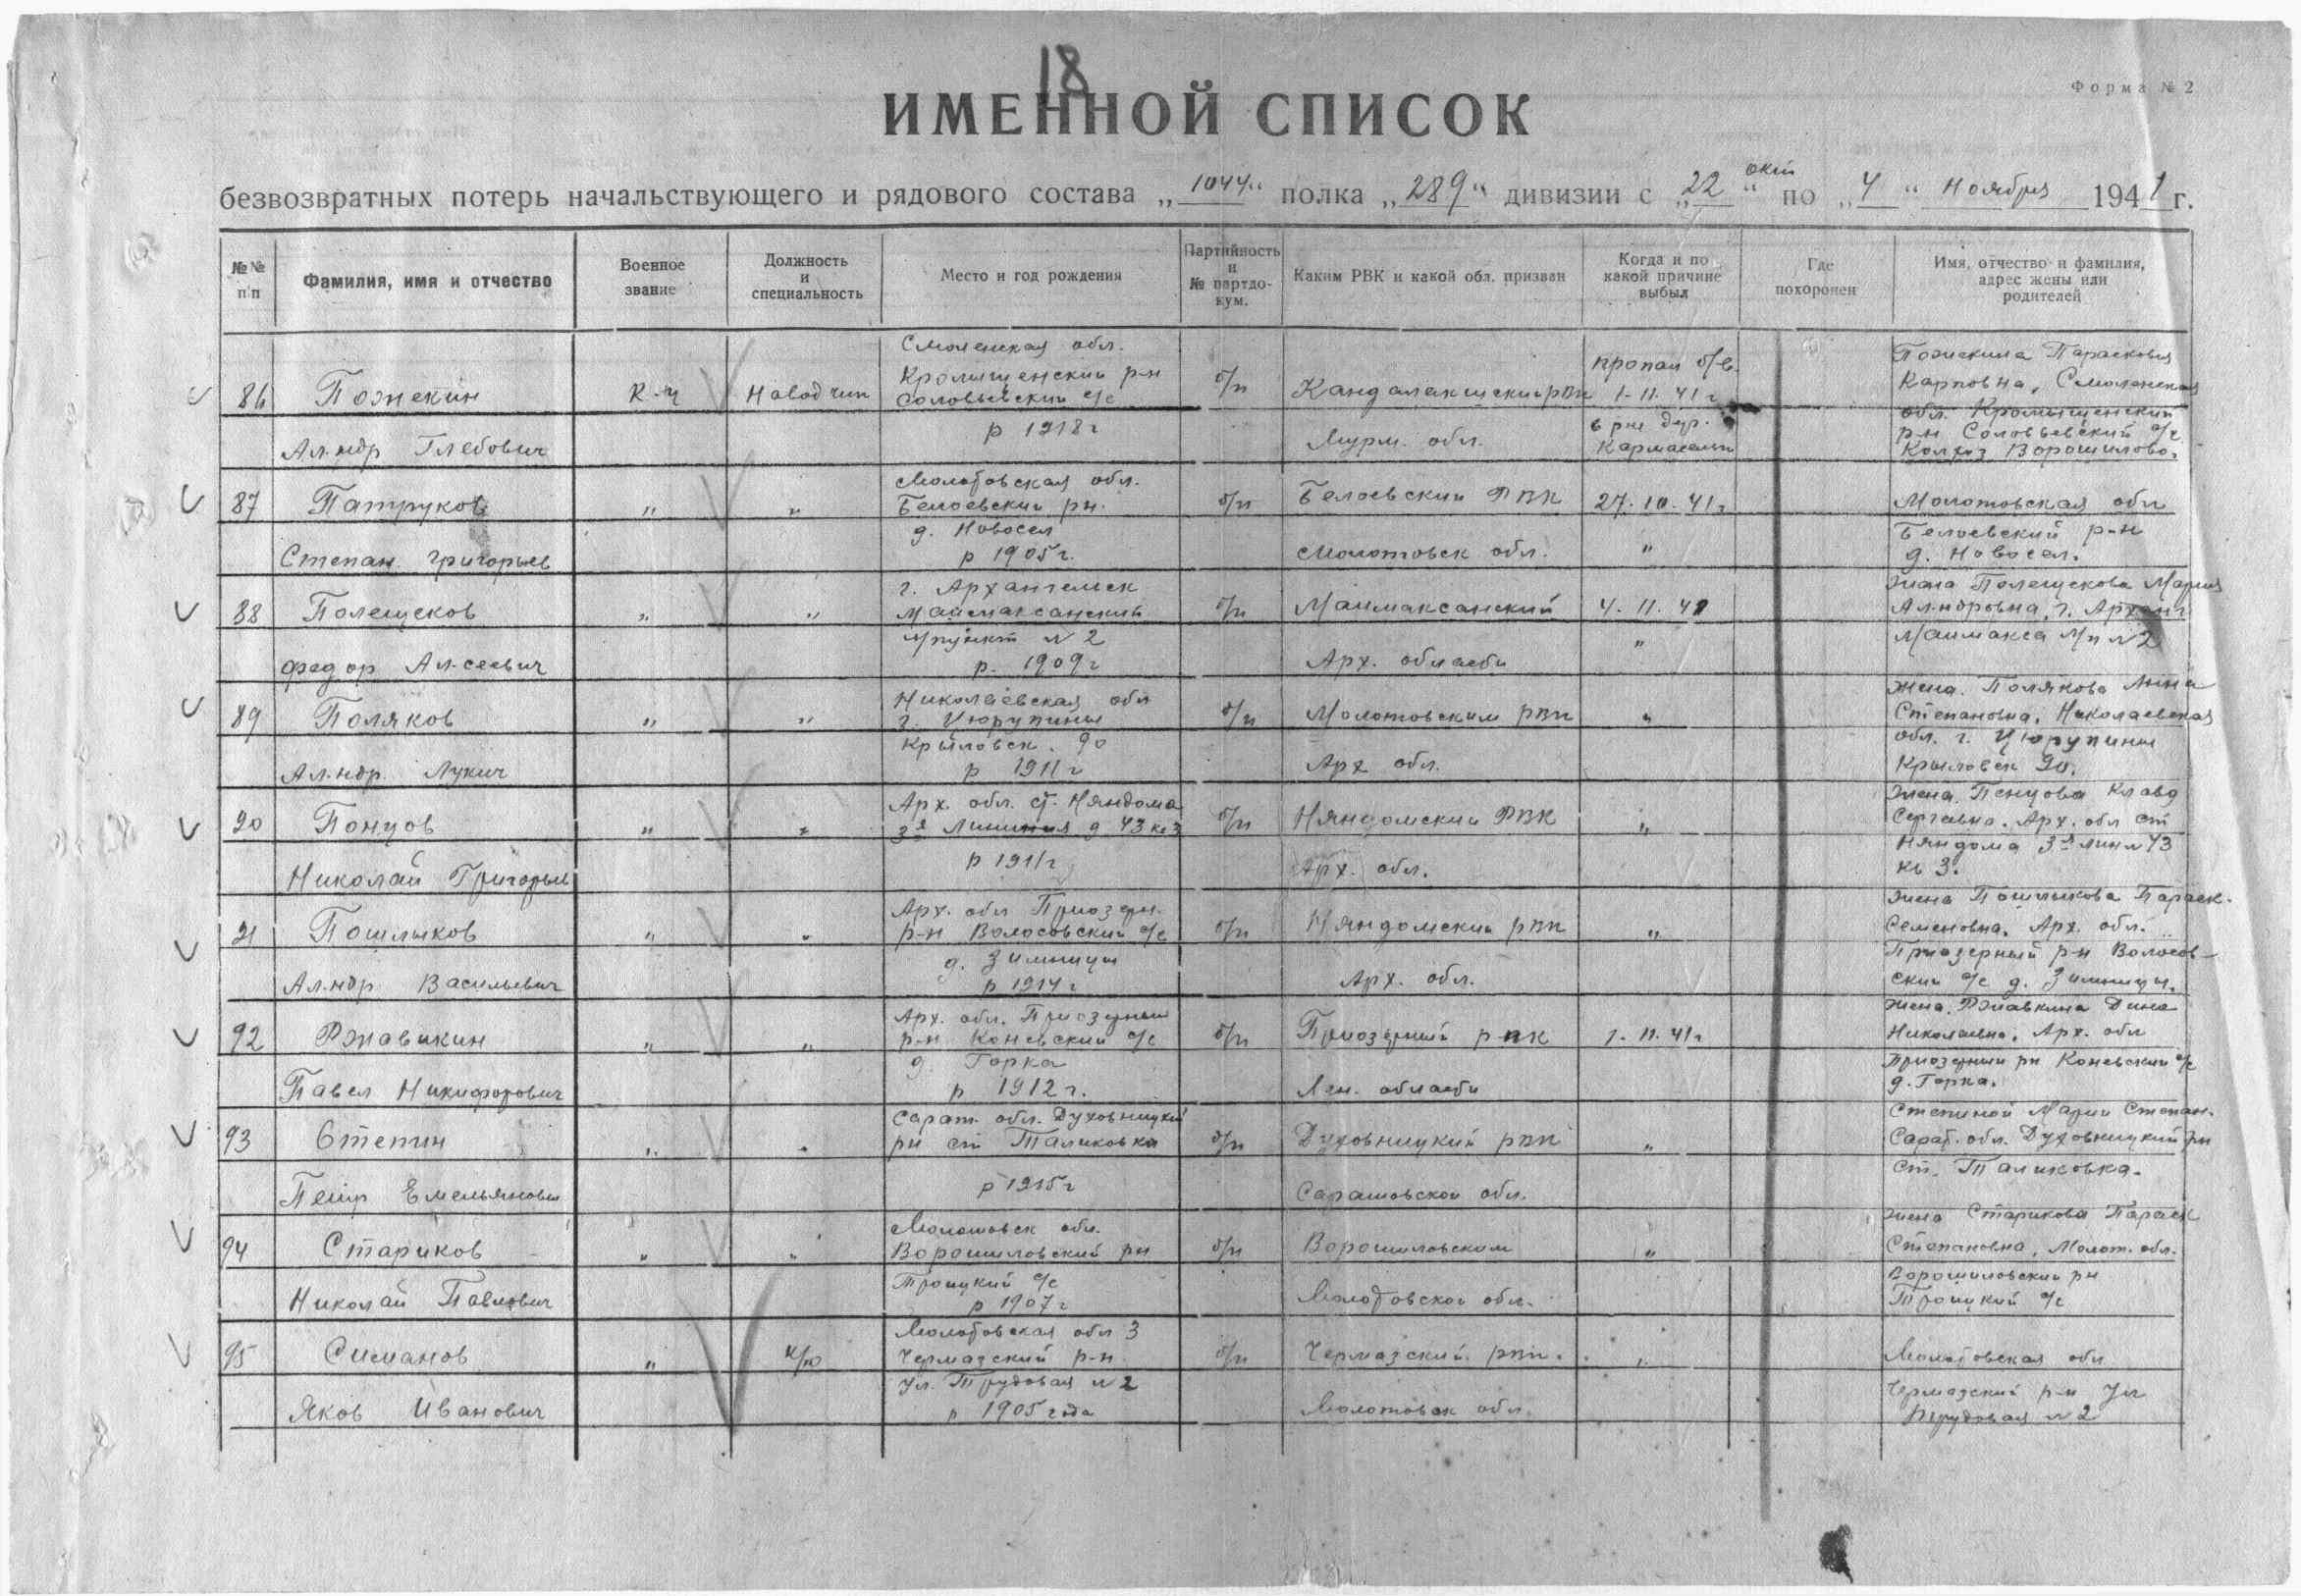 18
Форма № 2
ИМЕННОЙ СПИСОК
безвозвратных потерь начальствующего и рядового состава „1044“ полка „289“ дивизии с „22“ окт по „4“ ноября 1941 г.
№№ п/п
Фамилия, имя и отчество
Военное звание
Должность и специальность
Место и год рождения
Партийность и № партдокум.
Каким РВК и какой обл. призван
Когда и по какой причине выбыл
Где похоронен
Имя, отчество и фамилия, адрес жены или родителей
86 Пожекин К-ц Наводчик
Ал-ндр Глебович
Смоленская обл.
р-н
Соловьевский с/с
р 1918 г
б/п
Кандалакшский рвк
Мурм. обл.
пропал б/в.
1-11-41 г
в р-не дер.
Пожекина Парасковия
Карповна, Смоленская
обл.
р-н Соловьевский с/с
Колхоз Ворошилово.
87 Патруков " "
Степан Григорьев
Молотовская обл.
Белоевский рн.
д. Новосел
р 1905 г.
б/п
Белоевский РВК
Молотовск обл.
27-10-41 г
"
Молотовская обл
Белоевский р-н
д. Новосел.
88 Полещсков " "
Федор Ал-сеевич
г. Архангельск
Маймаксанский
л/пункт № 2
р. 1909 г
б/п
Маймаксанский
Арх. области
4-11-41
"
жена Полещскова Мария
Ал-ндровна, г. Арханг
Маймакса № 2
89 Поляков " "
Ал-ндр Лукич
Николаевская обл
г. Цюрупины
Крыловск. 90
р 1911 г
б/п
Молотовским рвк
Арх обл.
"
жена Полякова Анна
Степановна, Николаевская
обл. г. Цюрупины
Крыловск 90.
90 Понцов " "
Николай Григорьев
Арх. обл. ст. Няндома
3я Линия д 43 кв 3
р 1911 г
б/п
Няндомский РВК
Арх. обл.
"
жена Понцова Клавд
Сергеевна. Арх. обл ст
Няндома 3я лин № 43
кв 3.
91 Пошлыков " "
Ал-ндр Васильевич
Арх. обл Приозерн.
р-н Волосовский с/с
д. Зимницы
р 1914 г
б/п
Няндомский рвк
Арх. обл.
"
жена Пошлыкова Параск.
Семеновна. Арх. обл.
Приозерный р-н Волосов-
ский с/с д. Зимницы.
92 Ржавикин " "
Павел Никифорович
Арх. обл. Приозерный
р-н Коневский с/с
д. Горка
р 1912 г.
б/п
Приозерный рвк
области
1-11-41 г
жена Ржавкина Дина
Николаевна. Арх. обл
Приозерный рн Коневский с/с
д. Горка.
93 Степин " "
Петр Емельянович
Сарат. обл. Духовницкий
рн ст Таликовка
р 1915 г
б/п
Духовницкий рвк
Саратовской обл.
"
Степиной Марии Степан.
Сарат. обл. Духовницкий рн
ст. Таликовка.
94 Стариков " "
Николай Павлович
Молотовск обл.
Ворошиловский рн
Троицкий с/с
р 1907 г
б/п
Ворошиловским
Молотовской обл.
"
жена Старикова Параск
Степановна, Молот. обл.
Ворошиловский рн
Троицкий с/с
95 Симанов "
Яков Иванович
Молотовская обл
Чермазский р-н
ул. Трудовая № 2
р 1905 года
б/п
Чермазский рвк.
Молотовск обл.
"
Молотовская обл
Чермазский р-н ул
Трудовая № 2